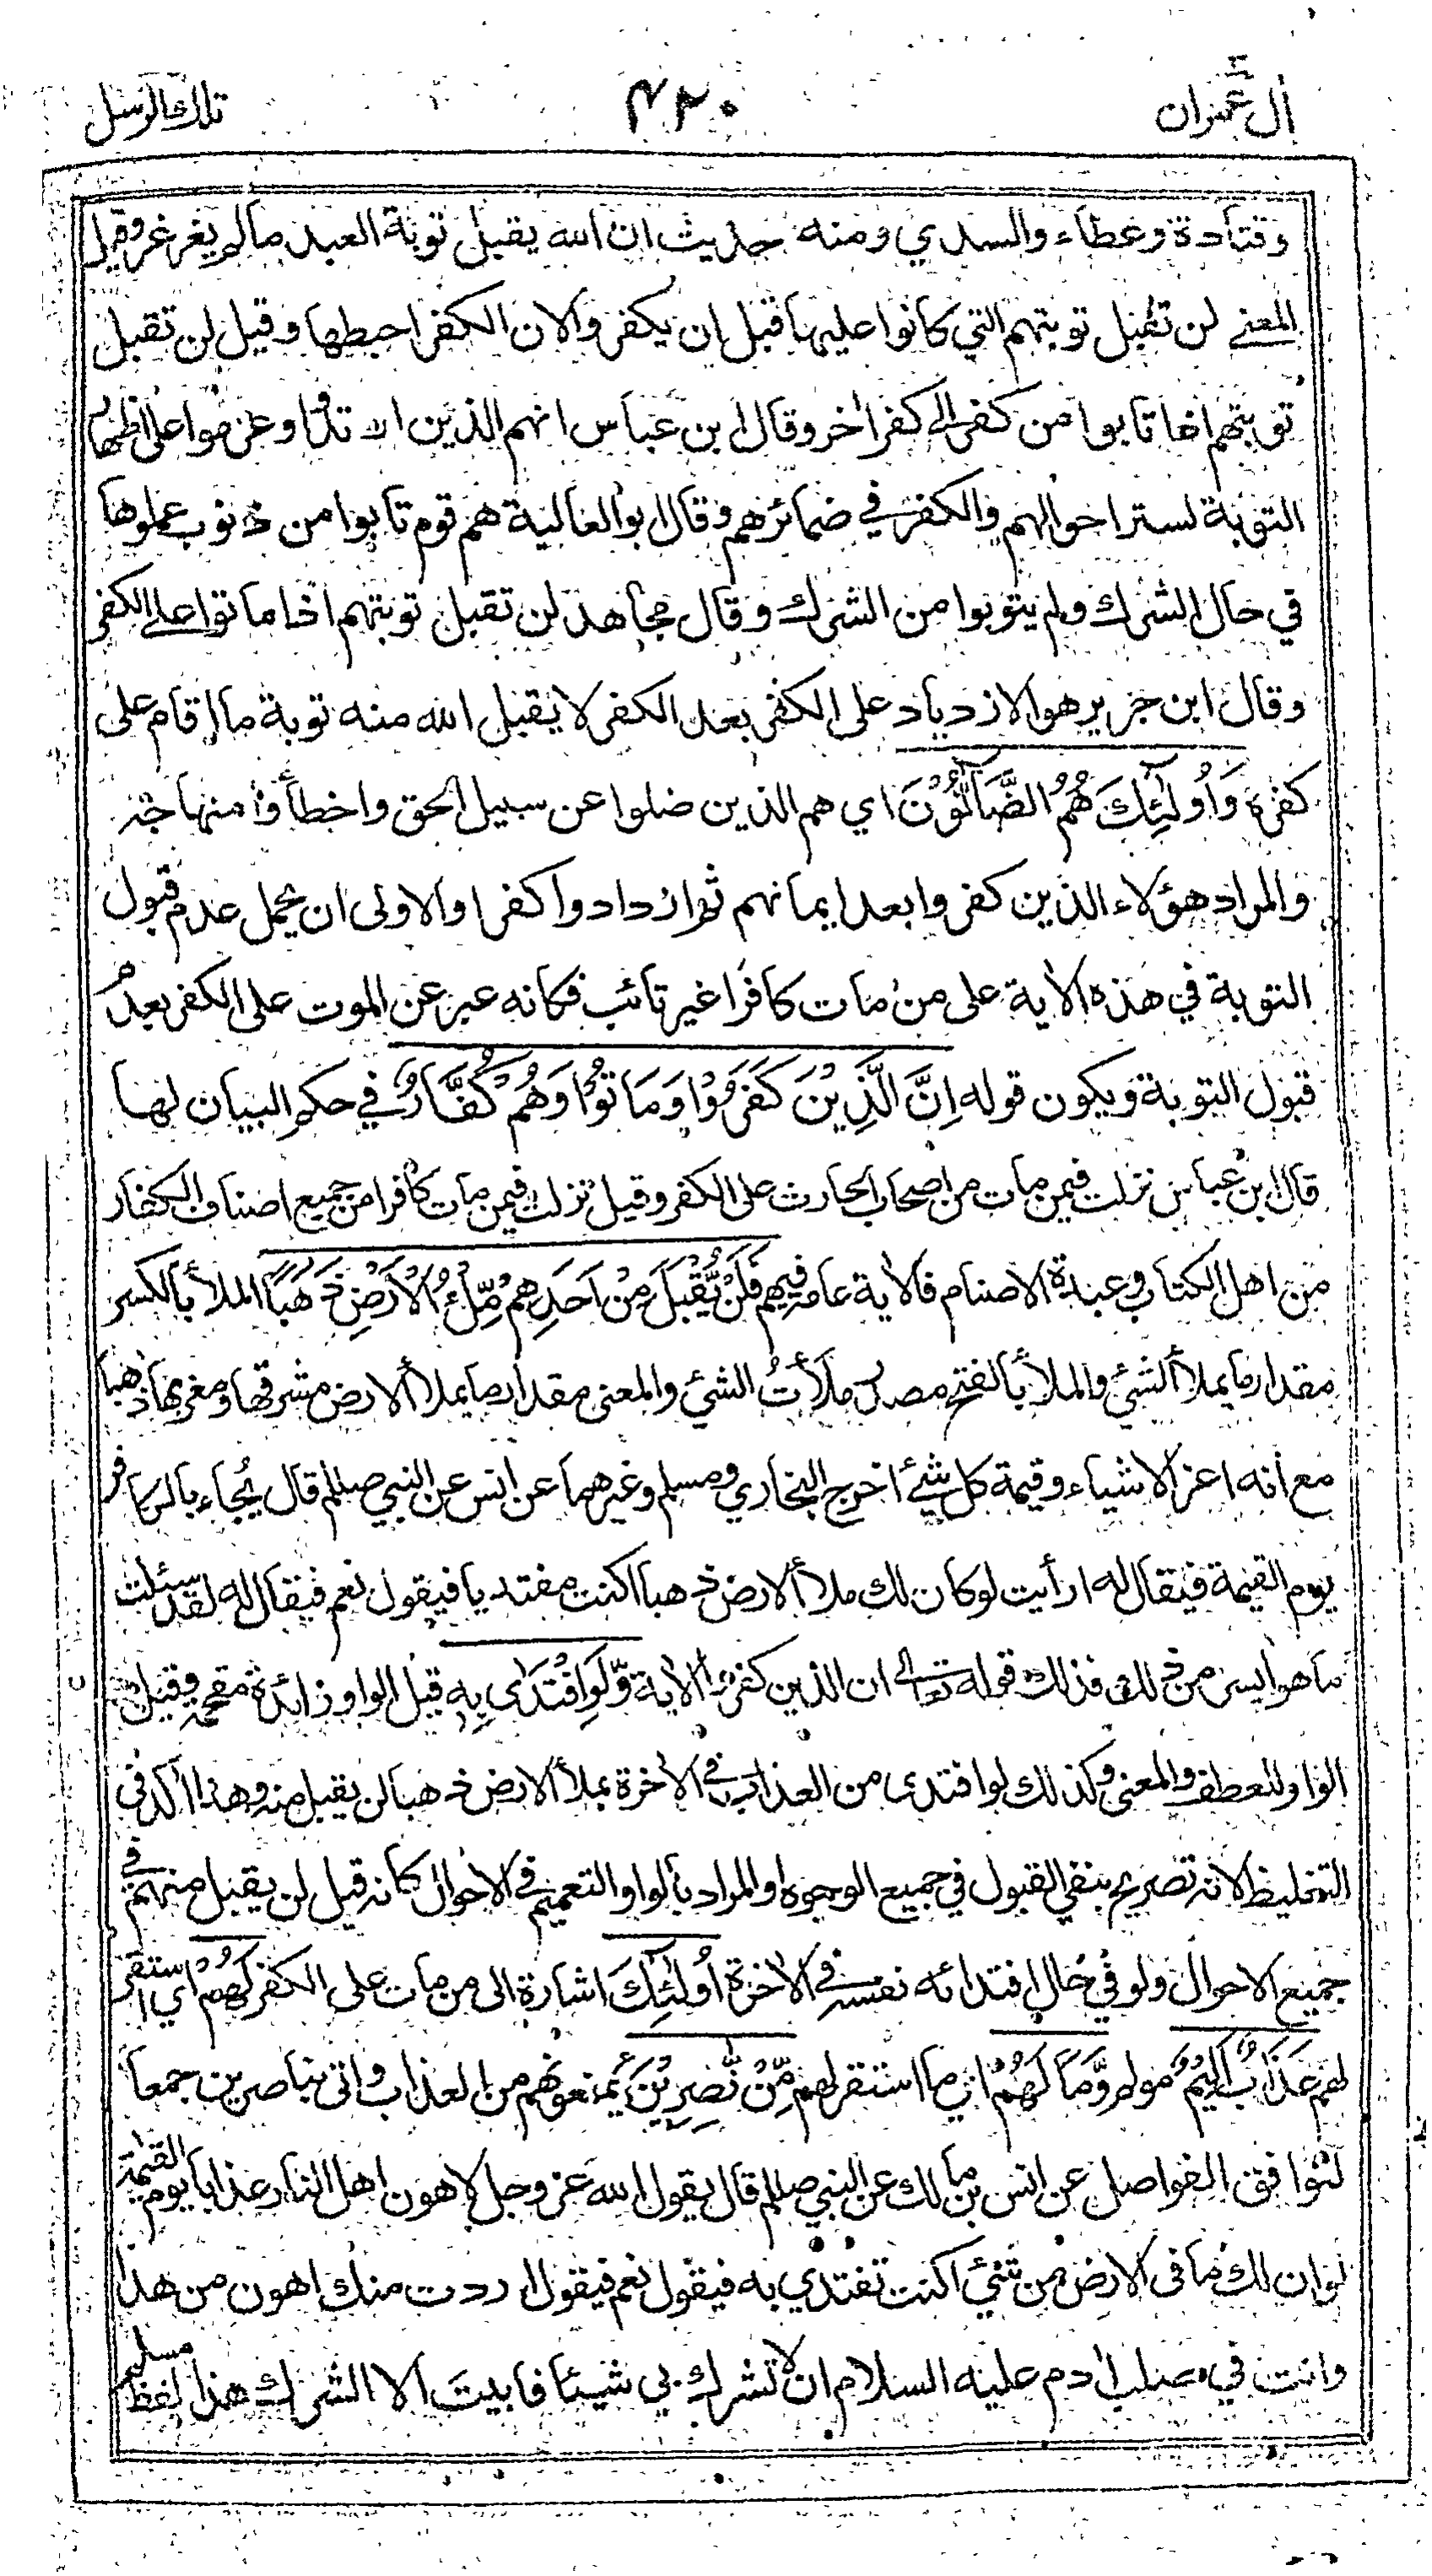 أل عمران ۴۲۰ تلك الرسل
وقتادة وعطاء والسدي ومنه حديث ان الله يقبل توبة العبد مالم يغرغر وقيل
المعنى لن تقبل توبتهم التي كانوا عليها قبل ان يكفروا لان الكفر احبطها وقيل لن تقبل
توبتهم اذا تابوا من كفر الى كفر اخر وقال ابن عباس انهم الذين ارتدوا وعزموا على اظهار
التوبة لستر احوالهم والكفر في ضمائرهم وقال ابو العالية هم قوم تابوا من ذنوب عملوها
في حال الشرك ولم يتوبوا من الشرك وقال مجاهد لن تقبل توبتهم اذا ماتوا على الكفر
وقال ابن جرير هو الازدياد على الكفر بعد الكفر لا يقبل الله منه توبة ما اقام على
كفره وَاُولٰٓئِكَ هُمُ الضَّآلُّوْنَ اي هم الذين ضلوا عن سبيل الحق واخطأوا منهاجه
والمراد هؤلاء الذين كفروا بعد ايمانهم ثم ازدادوا كفرا والاولى ان يحمل عدم قبول
التوبة في هذه الاية على من مات كافرا غير تائب فكانه عبر عن الموت على الكفر بعدم
قبول التوبة ويكون قوله اِنَّ الَّذِيْنَ كَفَرُوْا وَمَاتُوْا وَهُمْ كُفَّارٌ في حكم البيان لها
قال ابن عباس نزلت فيمن مات من اصحاب الحارث على الكفر وقيل نزلت فيمن مات كافرا من جميع اصناف الكفار
من اهل الكتاب وعبدة الاصنام فالاية عامة فيهم فَلَنْ يُّقْبَلَ مِنْ اَحَدِهِمْ مِّلْءُ الْاَرْضِ ذَهَبًا الملأ بالكسر
مقدار ما يملأ الشئ والملأ بالفتح مصدر ملأتُ الشئ والمعنى مقدار ما يملأ الارض مشرقها ومغربها ذهبا
مع انه اعز الاشياء وقيمة كل شئ اخرج البخاري ومسلم وغيرهما عن انس عن النبي صللم قال يُجاء بالكافر
يوم القيمة فيقال له ارأيت لو كان لك ملأ الارض ذهبا اكنت مفتديا فيقول نعم فيقال له لقد سئلت
ما هو ايسر من ذلك فذلك قوله تعالى ان الذين كفروا الاية وَّلَوِ افْتَدٰى بِهٖ قيل الواو زائدة مقحمة وقيل
الواو للعطف والمعنى وكذلك لو افتدى من العذاب في الاخرة بملأ الارض ذهبا لن يقبل منه وهذا اكد في
التغليظ لانه تصريح بنفي القبول في جميع الوجوه او المراد بالواو التعميم في الاحوال كانه قيل لن يقبل منهم في
جميع الاحوال ولو في حال افتدائه نفسه في الاخرة اُولٰٓئِكَ اشارة الى من مات على الكفر لَهُمْ اي استقر
لهم عَذَابٌ اَلِيْمٌ مولم وَّمَا لَهُمْ اي ما استقر لهم مِّنْ نّٰصِرِيْنَ يمنعونهم من العذاب واتى بناصرين جمعا
لتوافق الفواصل عن انس بن مالك عن النبي صللم قال يقول الله عز وجل لاهون اهل النار عذابا يوم القيمة
لو ان لك ما فى الارض من شئ اكنت تفتدي به فيقول نعم فيقول اردت منك اهون من هذا
وانت في صلب ادم عليه السلام ان لا تشرك بي شيئا فابيت الا الشرك هذا لفظ مسلم